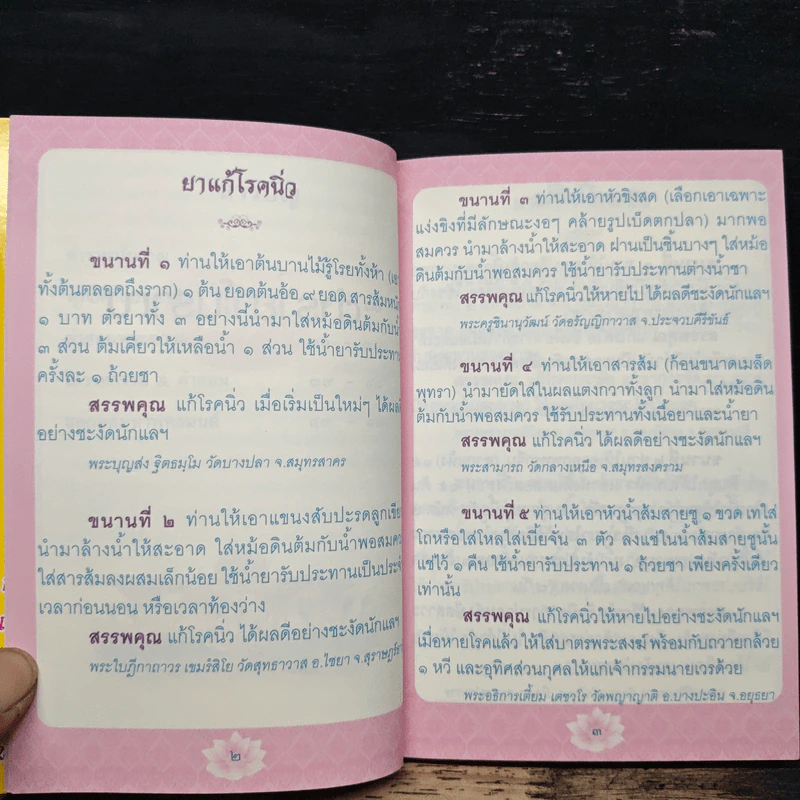 ยาแก้โรคนิ่ว
ขนานที่ ๑ ท่านให้เอาต้นบานไม้รู้โรยทั้งห้า
ทั้งต้นตลอดถึงราก) ๑ ต้น ยอดต้นอ้อ ๙ ยอด สารส้ม
๑ บาท ตัวยาทั้ง ๓ อย่างนี้นำมาใส่หม้อดินต้มกับ
๓ ส่วน ต้มเคี่ยวให้เหลือน้ำ ๑ ส่วน ใช้น้ำยารับ
ครั้งละ ๑ ถ้วยชา
สรรพคุณ แก้โรคนิ่ว เมื่อเริ่มเป็นใหม่ๆ ได้ผล
อย่างชะงัดนักแลฯ
พระบุญส่ง ฐิตธมฺโม วัดบางปลา จ.สมุทรสาคร
ขนานที่ ๒ ท่านให้เอาแขนงสับปะรดลูก
นำมาล้างน้ำให้สะอาด ใส่หม้อดินต้มกับน้ำพอสม
ใส่สารส้มลงผสมเล็กน้อย ใช้น้ำยารับประทานเป็น
เวลาก่อนนอน หรือเวลาท้องว่าง
สรรพคุณ แก้โรคนิ่ว ได้ผลดีอย่างชะงัดนักแลฯ
พระใบฎีกาถาวร เขมรํสิโย วัดสุทธาวาส อ.ไชยา
๒
ขนานที่ ๓ ท่านให้เอาหัวขิงสด (เลือกเอาเฉพาะ
แง่งขิงที่มีลักษณะงอๆ คล้ายรูปเบ็ดตกปลา) มากพอ
สมควร นำมาล้างน้ำให้สะอาด ฝานเป็นชิ้นบางๆ ใส่หม้อ
ดินต้มกับน้ำพอสมควร ใช้น้ำยารับประทานต่างน้ำชา
สรรพคุณ แก้โรคนิ่วให้หายไป ได้ผลดีชะงัดนักแลฯ
พระครูชินานุวัฒน์ วัดอรัญญิกาวาส จ.ประจวบคีรีขันธ์
ขนานที่ ๔ ท่านให้เอาสารส้ม (ก้อนขนาดเมล็ด
พุทรา) นำมายัดใส่ในผลแตงกวาทั้งลูก นำมาใส่หม้อดิน
ต้มกับน้ำพอสมควร ใช้รับประทานทั้งเนื้อยาและน้ำยา
สรรพคุณ แก้โรคนิ่ว ได้ผลดีอย่างชะงัดนักแลฯ
พระสามารถ วัดกลางเหนือ จ.สมุทรสงคราม
ขนานที่ ๕ ท่านให้เอาหัวน้ำส้มสายชู ๑ ขวด เทใส่
โถหรือใส่โหลใส่เบี้ยจั่น ๓ ตัว ลงแช่ในน้ำส้มสายชูนั้น
แช่ไว้ ๑ คืน ใช้น้ำยารับประทาน ๑ ถ้วยชา เพียงครั้งเดียว
เท่านั้น
สรรพคุณ แก้โรคนิ่วให้หายไปอย่างชะงัดนักแลฯ
เมื่อหายโรคแล้ว ให้ใส่บาตรพระสงฆ์ พร้อมกับถวายกล้วย
๑ หวี และอุทิศส่วนกุศลให้แก่เจ้ากรรมนายเวรด้วย
พระอธิการเตี้ยม เตชวโร วัดพญาญาติ อ.บางปะอิน จ.อยุธยา
๓